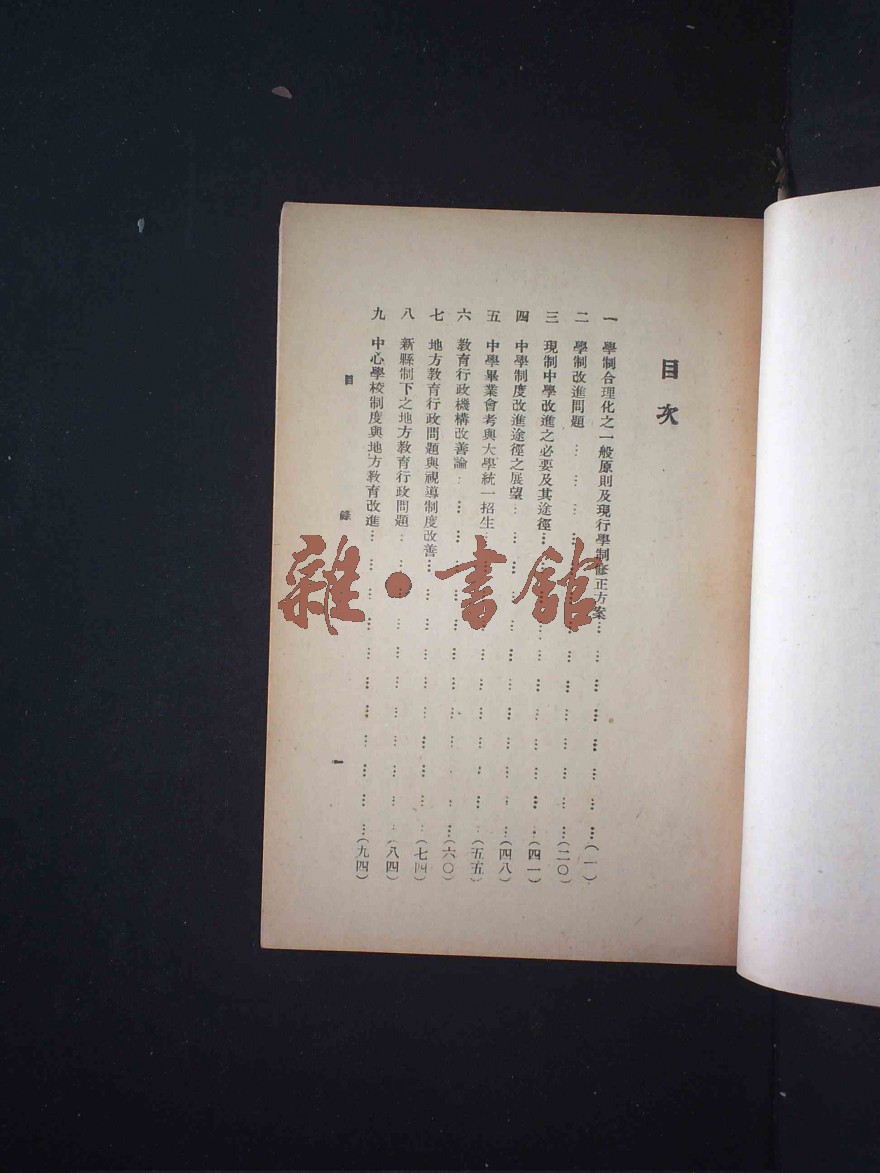 目次
一 學制合理化之一般原則及現行學制修正方案………………………(一)
二 學制改進問題………………………(二〇)
三 現制中學改進之必要及其途徑………………………(四一)
四 中學制度改進途徑之展望………………………(四八)
五 中學畢業會考與大學統一招生………………………(五五)
六 教育行政機構改善論………………………(六〇)
七 地方教育行政問題與視導制度改善………………………(七四)
八 新縣制下之地方教育行政問題………………………(八四)
九 中心學校制度與地方教育改進………………………(九四)
目錄 一
雜·書館